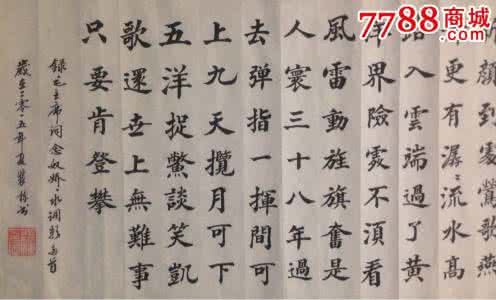 7788商城
.com
顔到處鶯歌燕
更有潺潺流水高
路入雲端過了黃
洋界險處不須看
風雷動旌旗奮是
人寰三十八年過
去彈指一揮間可
上九天攬月可下
五洋捉鱉談笑凱
歌還世上無難事
只要肯登攀
錄毛主席词念奴嬌水调歌首
歲在二零一五年夏書